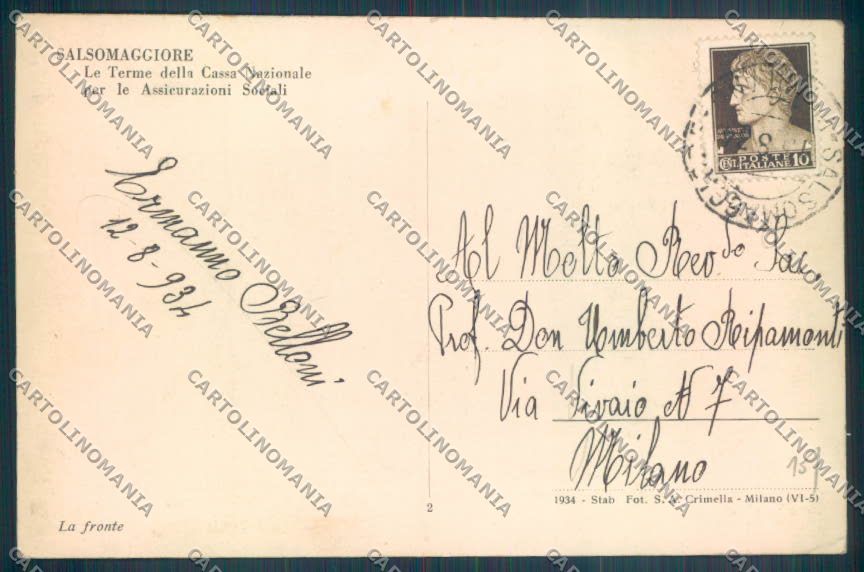 SALSOMAGGIORE
Le Terme della Cassa Nazionale
per le Assicurazioni Sociali
Ermanno Belloni
12-8-934
POSTE
CENT. ITALIANE 10
SALSOMAGGIORE
Al Molto Rev.do Sac.
Prof. Don Umberto Ripamonti
Via Vivaio N 7
Milano
15
1934 - Stab Fot. S. A. Crimella - Milano (VI-5)
2
La fronte
CARTOLINOMANIA